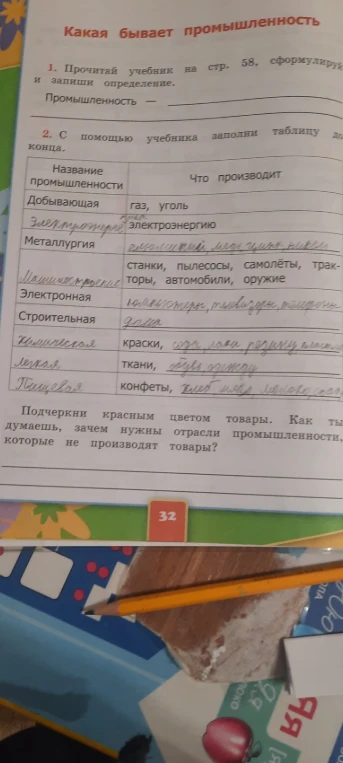 Какая бывает промышленность
1. Прочитай учебник на стр. 58. сформулируй
и запиши определение.
Промышленность —
2. С помощью учебника заполни таблицу до
конца.
Название промышленности
Что производит
Добывающая
газ, уголь
электроэнергию
Металлургия
станки, пылесосы, самолёты, трак-
Машиностроение
торы, автомобили, оружие
Электронная
Строительная
дома
Химическая
краски,
лаки резину
легкая
ткани, обувь одежду
Пищевая
конфеты, хлеб
молоко
Подчеркни красным цветом товары. Как ты
думаешь, зачем нужны отрасли промышленности,
которые не производят товары?
32